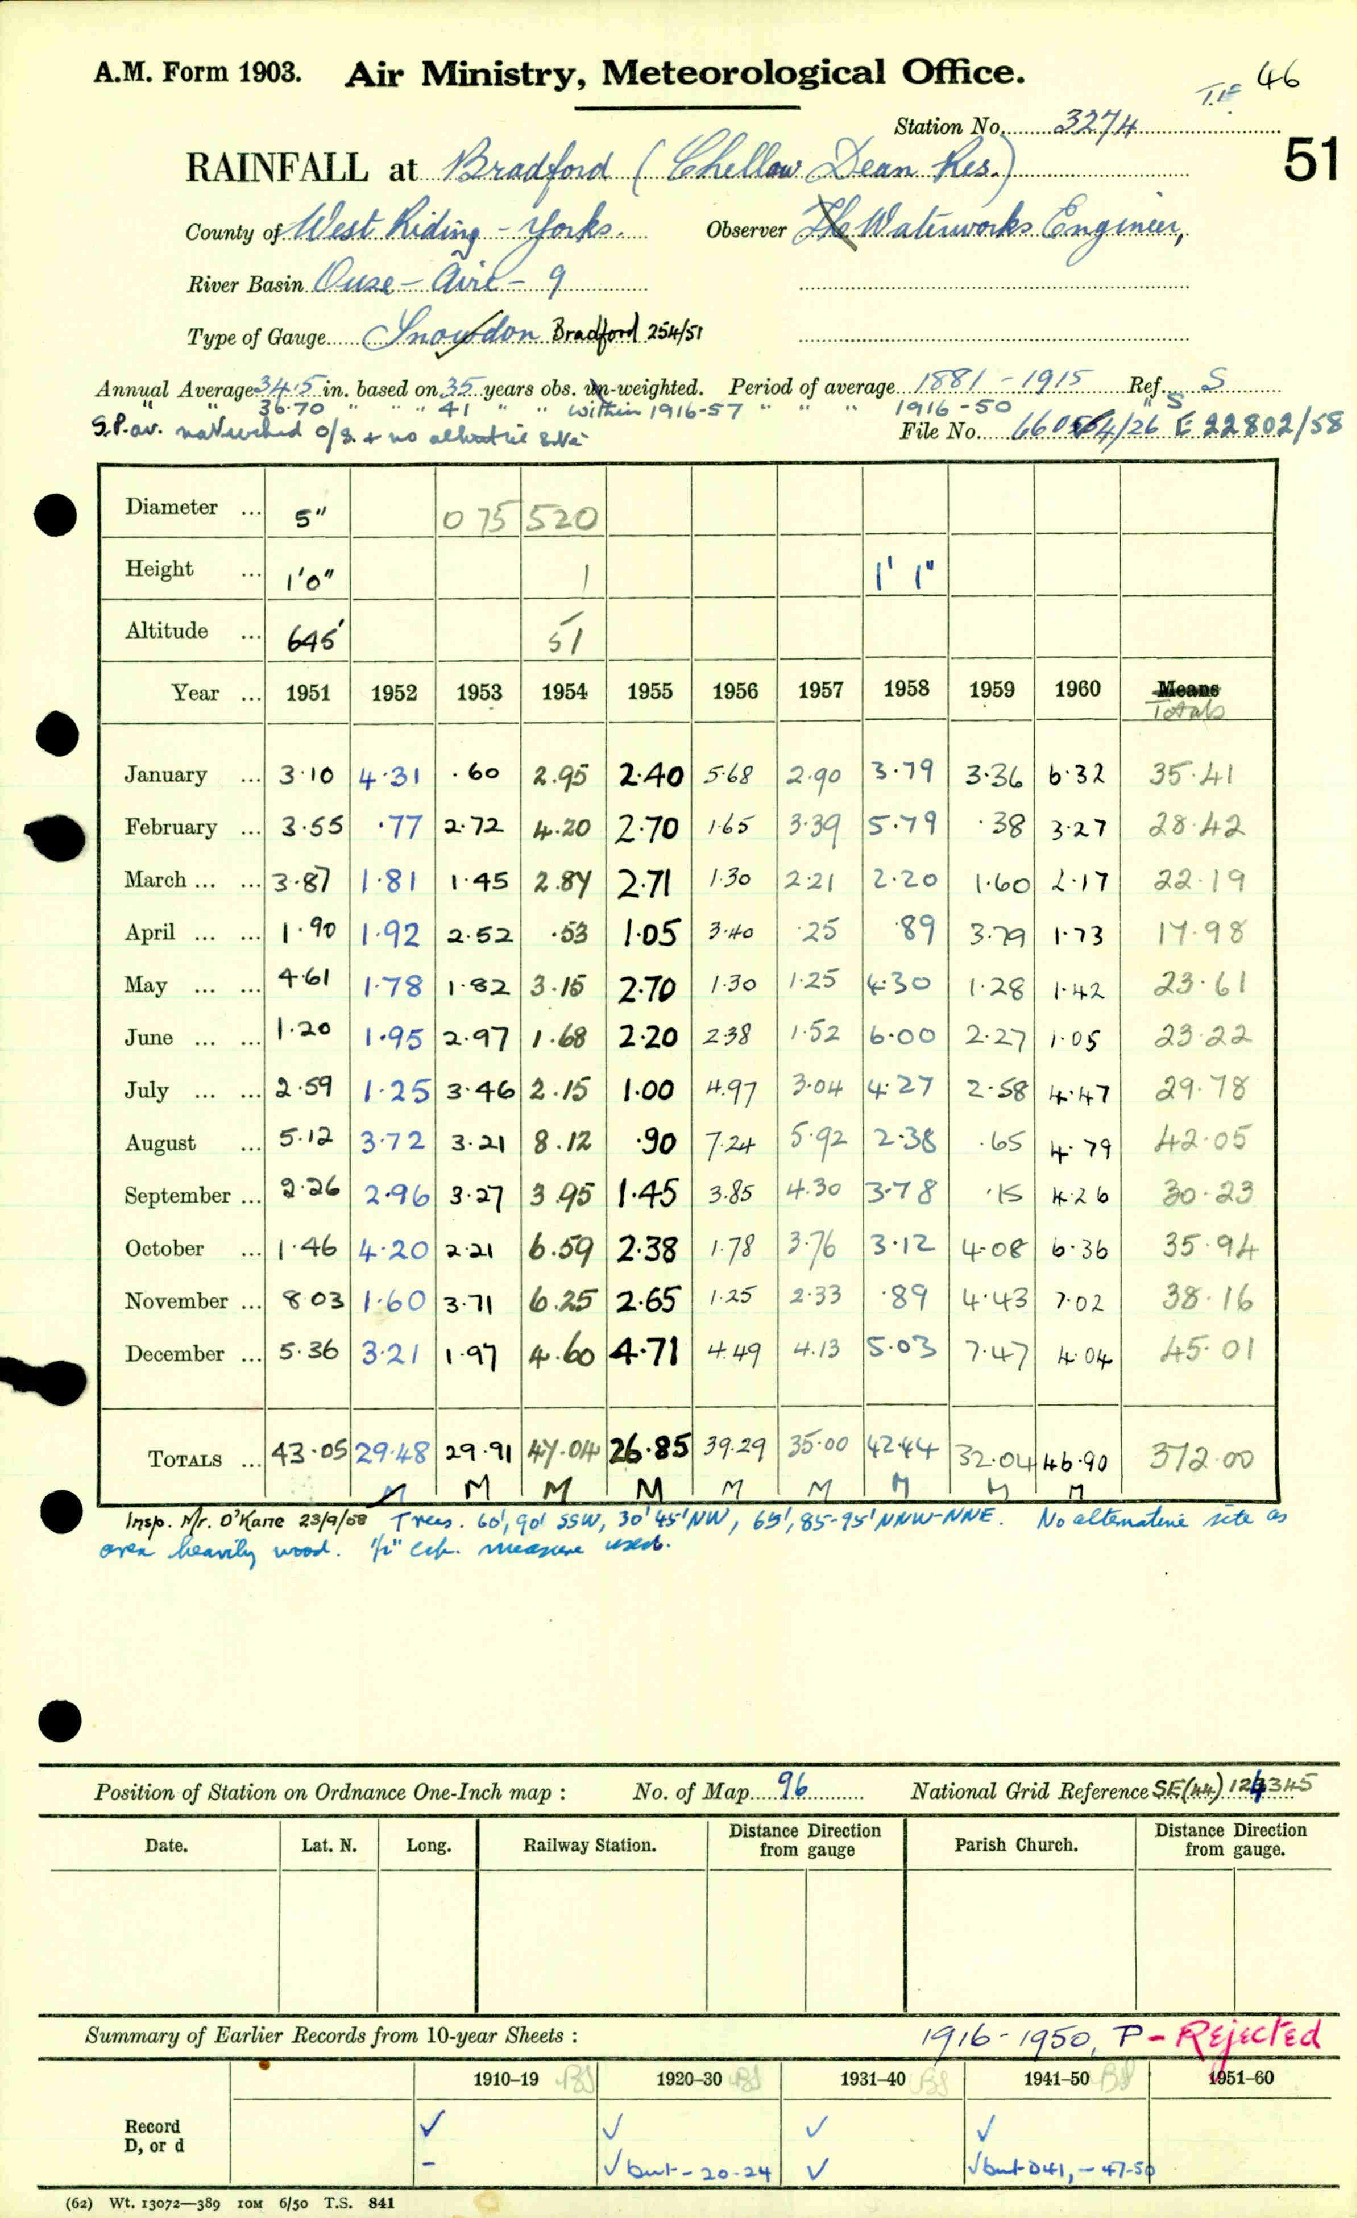 A.M. Form 1903. Air Ministry, Meteorological Office. 46
T.F.
Station No. 3274
51
RAINFALL at Bradford (Chellow Dean Res.)
County of West Riding - Yorks. Observer The Waterworks Engineer,
River Basin Ouse - Aire - 9
Type of Gauge Snowdon Bradford 254/51
Annual Average 34.5 in. based on 35 years obs. un-weighted. Period of average 1881 - 1915 Ref. S
" " 36.70 " " " 41 " " within 1916-57 " " " 1916-50 " S
S.P.av. o/g. + no File No. 4/26 E 22802/58
Diameter ... 5" 075 520
Height ... 1'0" 1 1' 1"
Altitude ... 645' 51
Year ... 1951 1952 1953 1954 1955 1956 1957 1958 1959 1960 Means
Totals
January ... 3.10 4.31 .60 2.95 2.40 5.68 2.90 3.79 3.36 6.32 35.41
February ... 3.55 .77 2.72 4.20 2.70 1.65 3.39 5.79 .38 3.27 28.42
March ... ... 3.87 1.81 1.45 2.84 2.71 1.30 2.21 2.20 1.60 2.17 22.19
April ... ... 1.90 1.92 2.52 .53 1.05 3.40 .25 .89 3.79 1.73 17.98
May ... ... 4.61 1.78 1.82 3.15 2.70 1.30 1.25 4.30 1.28 1.42 23.61
June ... ... 1.20 1.95 2.97 1.68 2.20 2.38 1.52 6.00 2.27 1.05 23.22
July ... ... 2.59 1.25 3.46 2.15 1.00 4.97 3.04 4.27 2.58 4.47 29.78
August ... 5.12 3.72 3.21 8.12 .90 7.24 5.92 2.38 .65 4.79 42.05
September ... 2.26 2.96 3.27 3.95 1.45 3.85 4.30 3.78 .15 4.26 30.23
October ... 1.46 4.20 2.21 6.59 2.38 1.78 3.76 3.12 4.08 6.36 35.94
November ... 8.03 1.60 3.71 6.25 2.65 1.25 2.33 .89 4.43 7.02 38.16
December ... 5.36 3.21 1.97 4.60 4.71 4.49 4.13 5.03 7.47 4.04 45.01
TOTALS ... 43.05 29.48 29.91 47.04 26.85 39.29 35.00 42.44 32.04 46.90 372.00
M M M M M M M M M
Insp. Mr. O'Kane 23/9/58 Trees. 60', 90' SSW, 30' 45' NW, 65', 85-95' NNW-NNE. No alternative site as
area heavily wood. 1/2" cap. measure used.
Position of Station on Ordnance One-Inch map : No. of Map 96 National Grid Reference SE(44) 124345
Date. Lat. N. Long. Railway Station. Distance from Direction gauge Parish Church. Distance from Direction gauge.
Summary of Earlier Records from 10-year Sheets : 1916-1950, P - Rejected
1910–19 BS 1920–30 BS 1931–40 BS 1941–50 BS 1951–60
Record ✓ ✓ ✓ ✓
D, or d – ✓ but - 20-24 ✓ ✓ but D41, - 47-50
(62) Wt. 13072—389 10M 6/50 T.S. 841